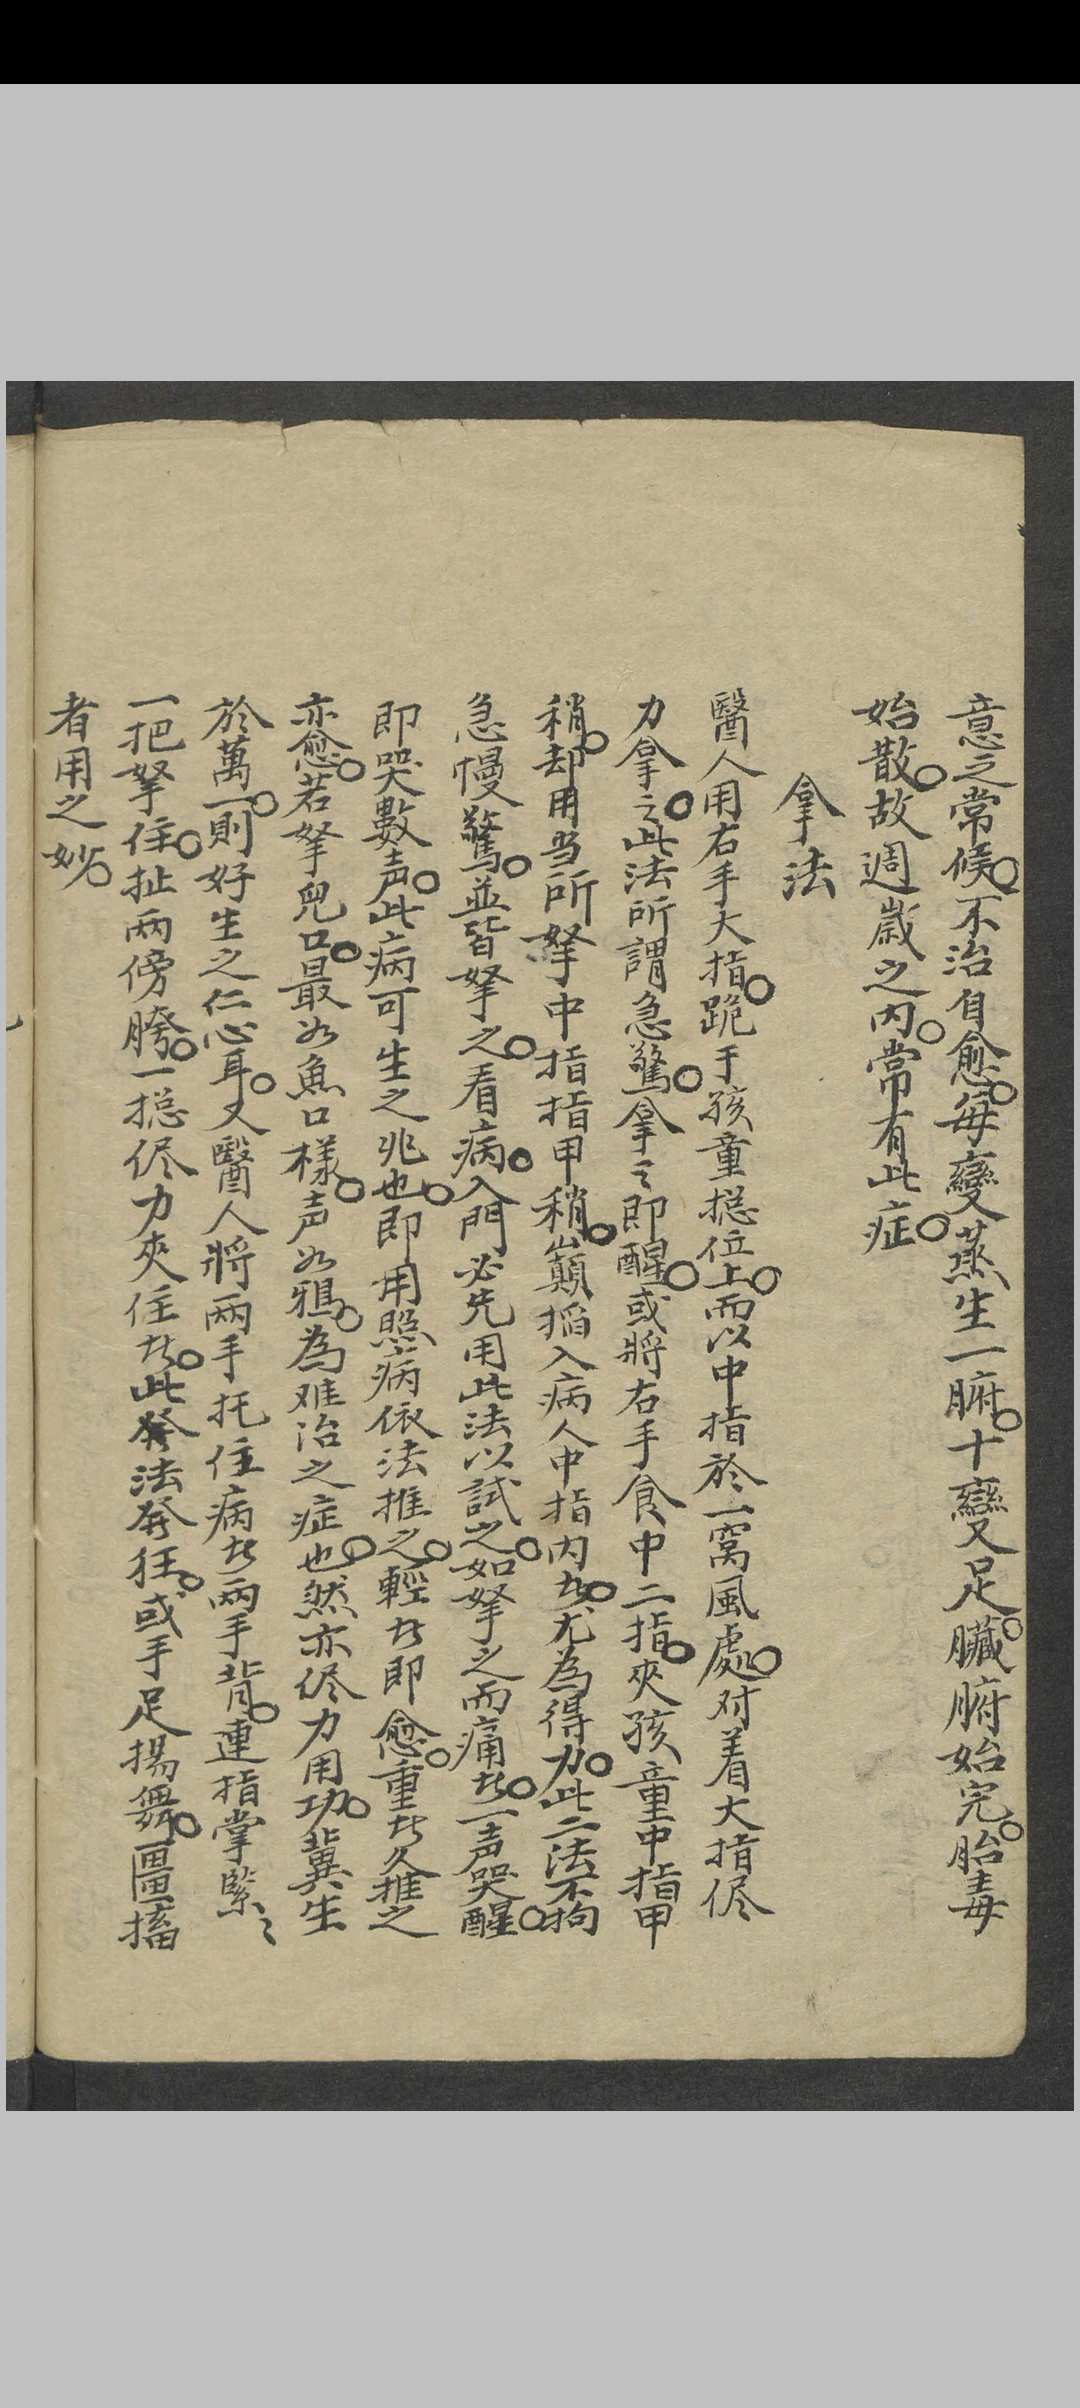 意之常候○不治自愈○每變蒸生一腑○十變足○臟腑始完○胎毒
始散○故週歲之內○常有此症○
拿法
醫人用右手大指○跪于孩童揔位上○而以中指於一窩風處○对着大指侭
力拿之○此法所謂急驚○拿之即醒○或將右手食中二指○夾孩童中指甲
稍○却用当所拏中指指甲稍○巔搯入病人中指內者○尤為得力○此二法不拘
急慢驚○並皆拏之○看病○入門必先用此法以試之○如拏之而痛者○一声哭醒○
即哭數声○此病可生之兆也○即用照病依法推之○輕者即愈○重者久推之
亦愈○若拏兒口○最如魚口樣○声如鴉○為难治之症也○然亦侭力用功○冀生
於萬一○則好生之仁心耳○又醫人將兩手托住病者兩手背○連指掌緊〻
一把拏住○扯兩傍胯○一揔侭力夾住者○此發法發狂○或手足揚舞○畺搐
者用之妙○